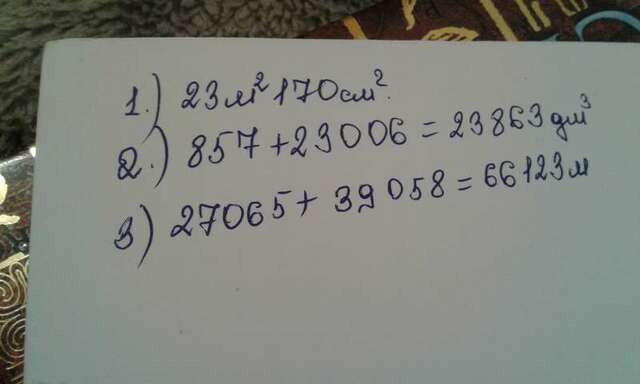 1.) 23 м² 170 см².
2.) 857 + 23006 = 23863 дм³
3) 27065 + 39058 = 66123 м